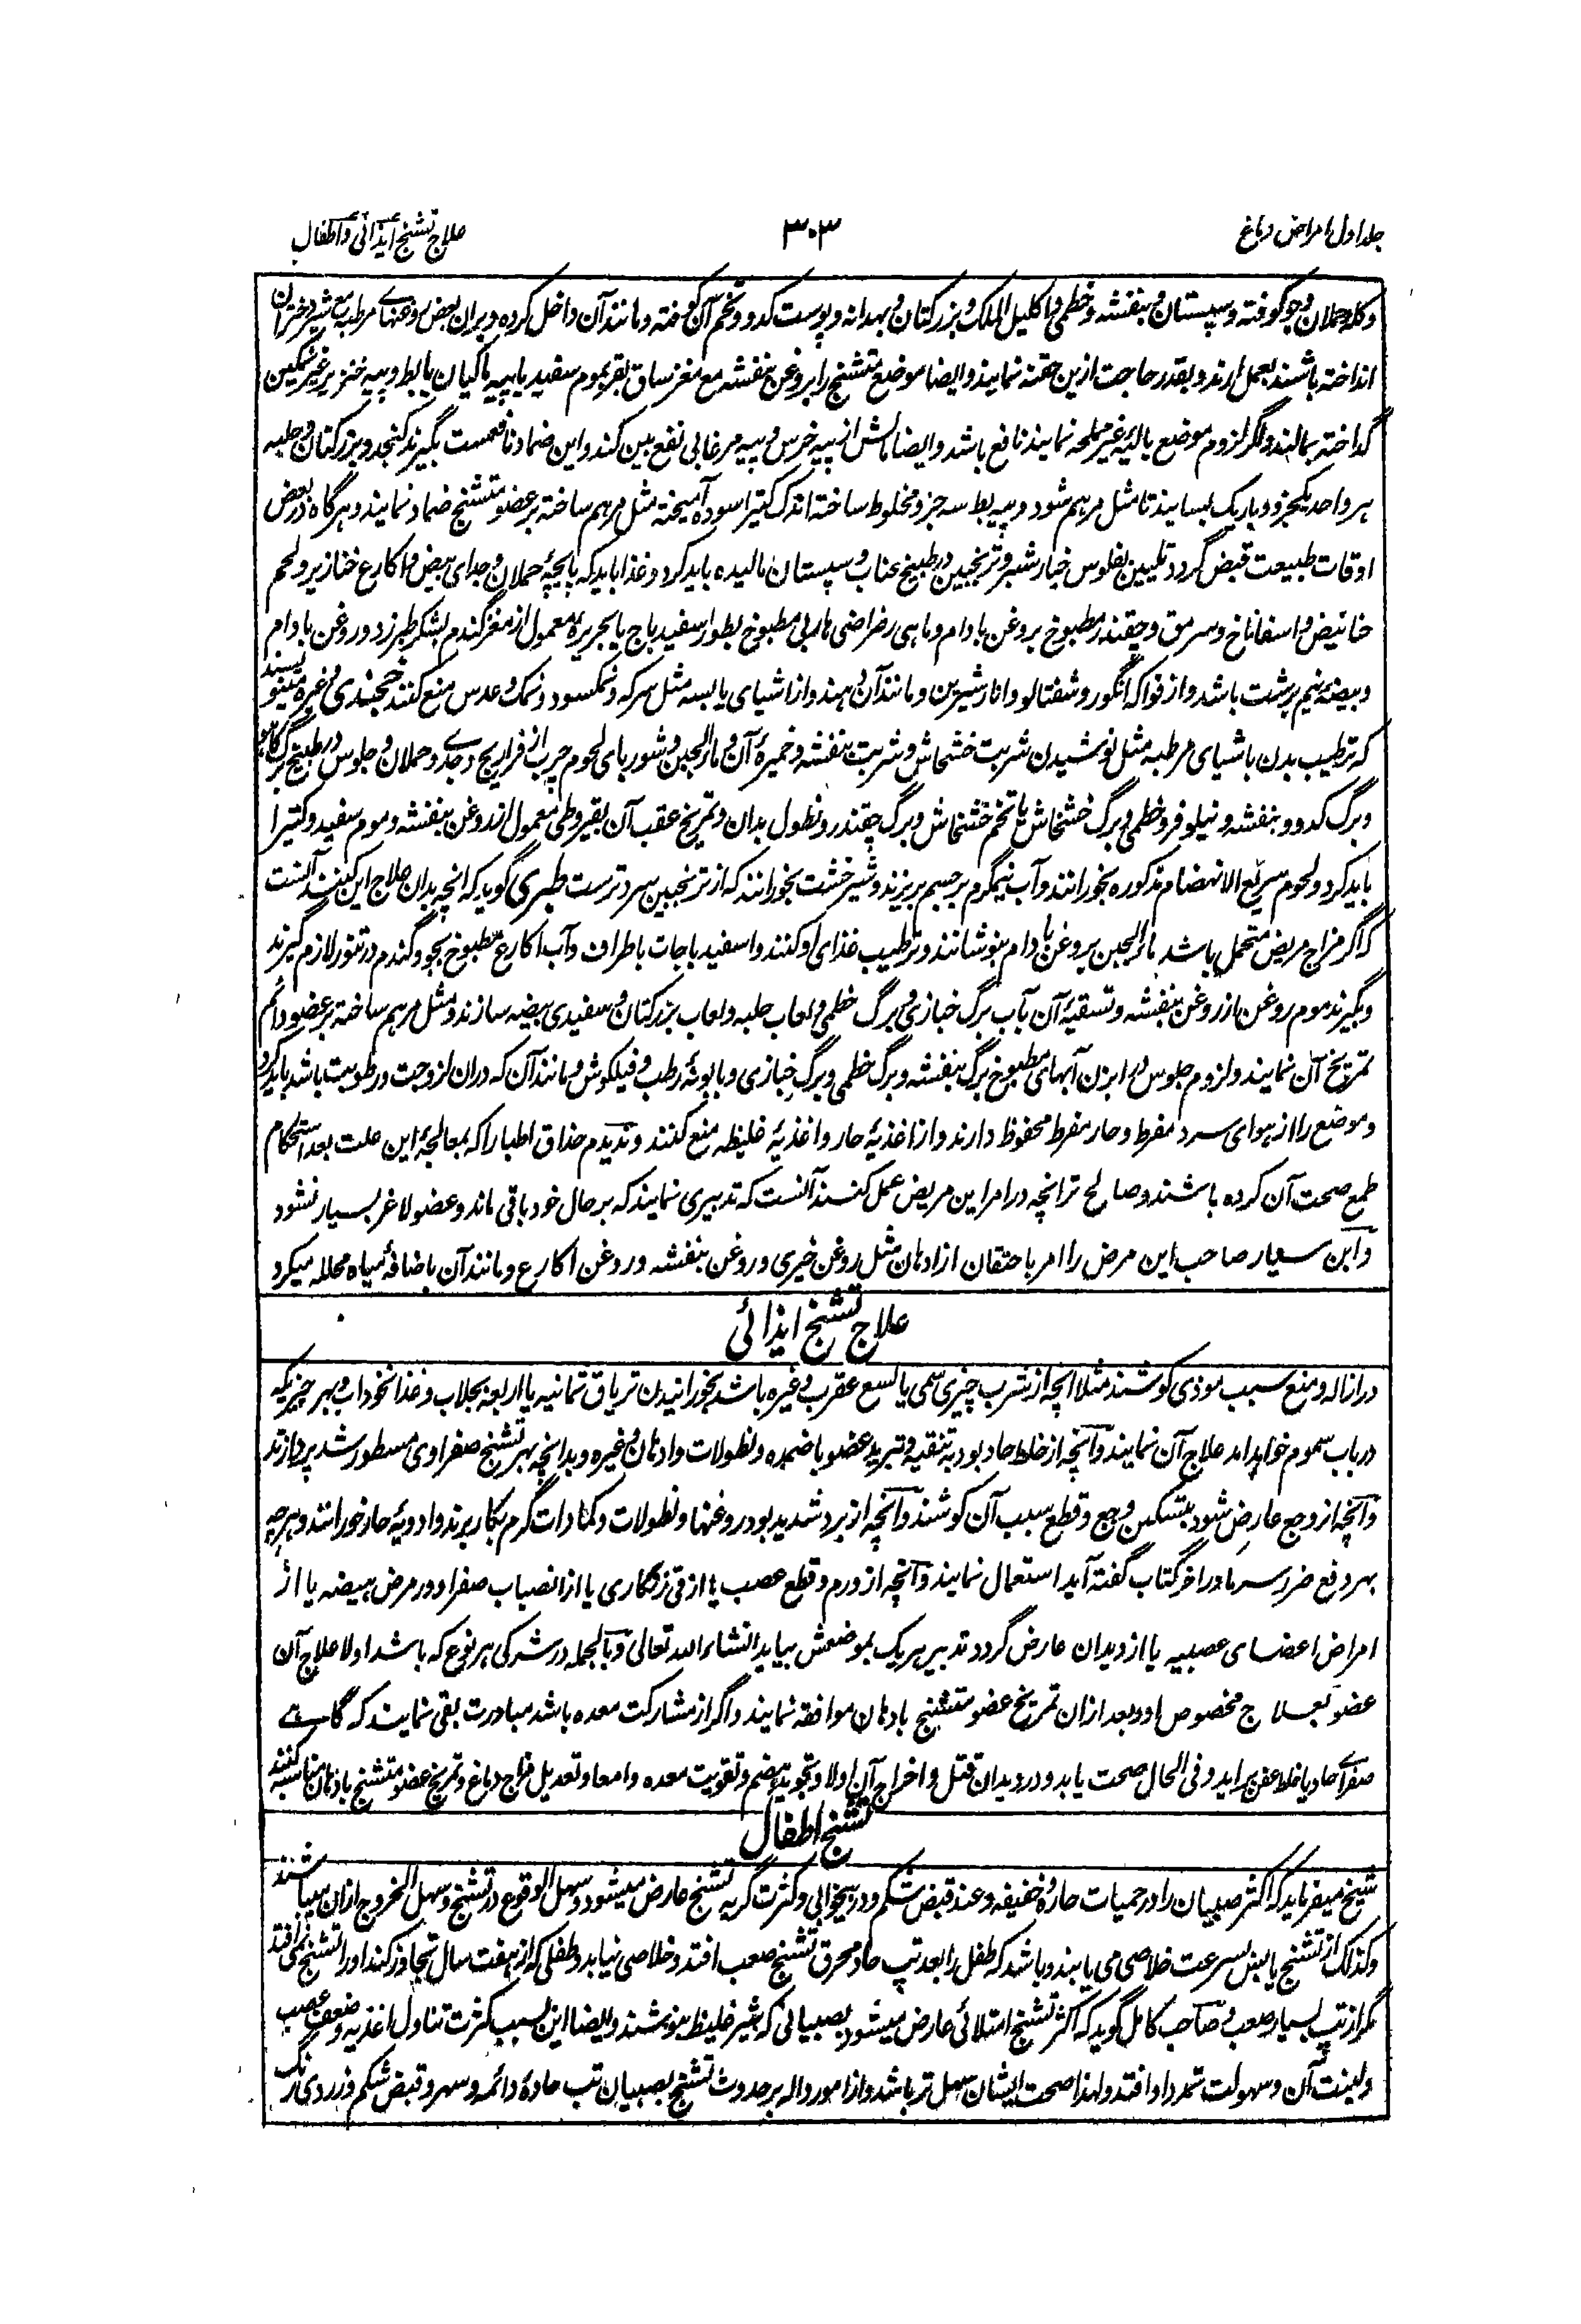 جلد اول امراض دماغ
۳۰۳
علاج تشنج ایذائی و اطفال
و کله حملان و جو کوفته و سپستان و بنفشه و خطمی و اکلیل الملک و بزر کتان و بهدانه و پوست کدو و تخم آن کوفته و مانند آن داخل کرده و بران بعض روغنهاے مرطبه مع شیر دختران
انداخته باشند بعمل ارند و بقدر حاجت ازین حقنه نمایند و ایضا موضع متشنج را بروغن بنفشه مع مغز ساق بقر بموم سفید یا پیه ماکیان یا بط و پیه خنزیر غیر نمکین
گداخته بمالند و اگر لزوم موضع بالیهٔ غیر مملحه نمایند نافع باشد و ایضا مالش از پیه خرس و پیه مرغابی نفع بین کند و این ضماد نافعست بگیرند کنجد و بزر کتان و حلبه
هر واحد یکجزو و باریک بسایند تا مثل مرهم شود و پیه بط سه جزو مخلوط ساخته اندک کتیرا سوده آمیخته مثل مرهم ساخته بر عضو متشنج ضماد نمایند و هرگاه در بعض
اوقات طبیعت قبض گردد تلیین بفلوس خیارشنبر و ترنجبین در طبیخ عناب و سپستان مالیده باید کرد و غذا باید که پایچهٔ حملان و جدای بیض و اکارع خنازیر و لحم
خنانیص و اسفاناخ و سرمق و چقندر مطبوخ بروغن بادام و ماهی رضراضی ماربی مطبوخ بطور اسفیدباج یا بحریرهٔ معمول از مغز گندم بشکر طبرزد و روغن بادام
و بیضهٔ نیم برشت باشد و از فواکه انگور و شفتالو و انار شیرین و مانند آن بدهند و از اشیای یابسه مثل سرکه و نمکسود و نمک و عدس منع کنند خجندی و غیره مینویسند
که ترطیب بدن باشیای مرطبه مثل نوشیدن شربت خشخاش و شربت بنفشه و خمیرهٔ آن و ماء الجبن و شوربای لحوم چرب از فراریج و جدے و حملان و جلوس در طبیخ برگ کاهو
و برگ کدو و بنفشه و نیلوفر و خطمی و برگ خشخاش یا تخم خشخاش و برگ چقندر و نطول بدان و تمریخ عقب آن بقیروطی معمول از روغن بنفشه و موم سفید و کتیرا
باید کرد و لحوم سریع الانهضام مذکوره بخورانند و آب نیمگرم بر جسم بریزند و شیرخشت بخورانند که از ترنجبین سرد ترست طبری گوید که انچه بدان علاج این کنند آنست
که اگر مزاج مریض متحمل باشد ماء الجبن بروغن بادام بنوشانند و ترطیب غذای او کنند و اسفیدباجات باطراف و آب اکارع مطبوخ بجو و گندم در تنور لازم گیرند
و بگیرند موم روغن از روغن بنفشه و تسقیهٔ آن بآب برگ خبازی و برگ خطمی و لعاب حلبه و لعاب بزر کتان و سفیدی بیضه سازند و مثل مرهم ساخته بر عضو دائم
تمریخ آن نمایند و لزوم جلوس در ابزن آبهای مطبوخ برگ بنفشه و برگ خطمی و برگ خبازی و بابونهٔ رطب و فیلگوش و مانند آن که دران لزوجت و رطوبت باشد باید کرد
و موضع را از هوای سرد مفرط و حار مفرط محفوظ دارند و از اغذیهٔ حار و اغذیهٔ غلیظه منع کنند و ندیدم حذاق اطبا را که بمعالجهٔ این علت بعد استحکام
طمع صحت آن کرده باشند و صالح تر انچه در امر این مریض عمل کنند آنست که تدبیری نمایند که بر حال خود باقی ماند و عضو لاغر بسیار نشود
و ابن سیار صاحب این مرض را امر باحتقان از ادهان مثل روغن خیری و روغن بنفشه و روغن اکارع و مانند آن باضافهٔ میاه محلله میکرد
علاج تشنج ایذائی
در ازاله و منع سبب موذی کوشند مثلا انچه از شرب چیزی سمی یا لسع عقرب و غیره باشد بخورانیدن تریاق ثمانیه یا اربعه بجلاب و غذا نخوداب و بهر چیزیکه
در باب سموم خواهد امد علاج آن نمایند و آنچه از خلط حاد بود به تنقیه و تبرید عضو باضمده و نطولات و ادهان و غیره و بدانچه بهر تشنج صفراوی مسطور شد پردازند
و آنچه از وجع عارض شود بتسکین وجع و قطع سبب آن کوشند و آنچه از برد شدید بود روغنها و نطولات و کمادات گرم بکار برند و ادویهٔ حار خورانند و هرچه
بهر دفع ضرر سرما در اخر کتاب گفته آید استعمال نمایند و آنچه از ورم و قطع عصب یا از قی زنگاری یا از انصباب صفرا و در مرض هیضه یا از
امراض اعضای عصبیه یا از دیدان عارض گردد تدبیر هریک بموضعش بیاید انشاء الله تعالی و بالجمله در شرکی هر نوع که باشد اولا علاج آن
عضو بعلاج مخصوص او و بعد ازان تمریخ عضو متشنج بادهان موافقه نمایند و اگر از مشارکت معده باشد مبادرت بقی نمایند که گاہے
صفراے حاد یا خلط عفن براید و فی الحال صحت یابد و در دیدان قتل و اخراج آن اولا و تجوید هضم و تقویت معده و امعا و تعدیل مزاج دماغ و تمریخ عضو متشنج بادهان مناسبه کنند
تشنج اطفال
شیخ میفرماید که اکثر صبیان را در حمیات حاره و خفیفه و عند قبض شکم و در بیخوابی و کثرت گریه تشنج عارض میشود و سهل الوقوع در تشنج و سهل الخروج ازان میباشند
و کذلک از تشنج یابس بسرعت خلاصی می یابند و باشد که طفل را بعد تپ حاد محرق تشنج صعب افتد و خلاصی نیابد و طفلی که از هفت سال تجاوز کند او را تشنج نمی افتد
مگر از تپ بسیار صعب و صاحب کامل گوید که اکثر تشنج امتلائی عارض میشود بصبیانی که شیر غلیظ بنوشند و ایضا این بسبب کثرت تناول اغذیه و ضعف عصب
و لینت آن و سهولت تمدد او افتد و لهذا صحت ایشان سهل تر باشد و از امور داله بر حدوث تشنج بصبیان تب حادهٔ دائمه و سهر و قبض شکم و زردی رنگ